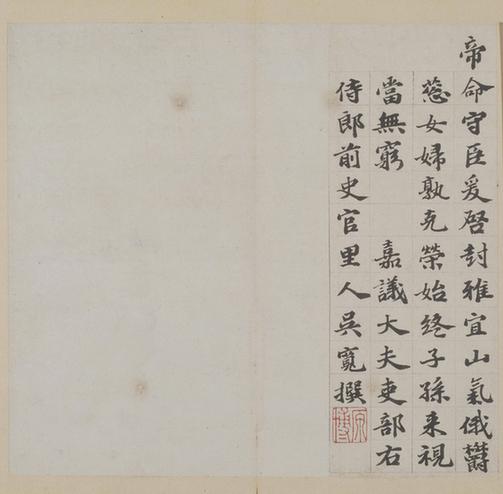 帝命守臣爰啓封雅宜山氣俄鬱
慈女婦孰克榮始終子孫來視
當無窮 嘉議大夫吏部右
侍郎前史官里人吳寬撰
原博